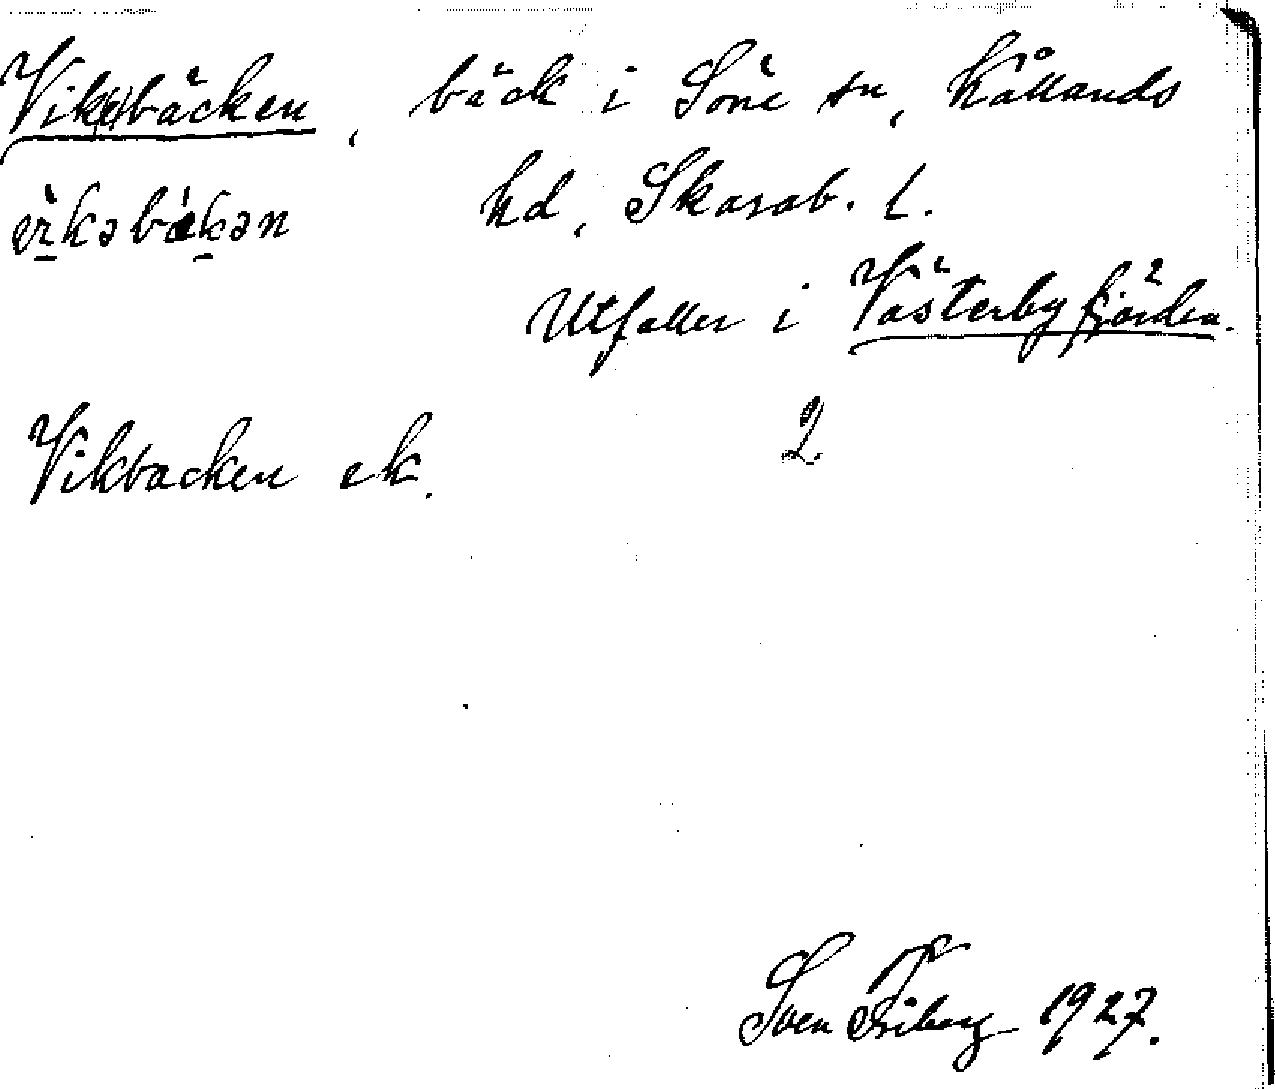 Vik(e)bäcken, bäck i Söne sn, Kållands
vi̱kəbäkən hd, Skarab. l.
Utfaller i Västerbyfjärden.
Vikbacken ek. 2.
Sven Friberg 1927.